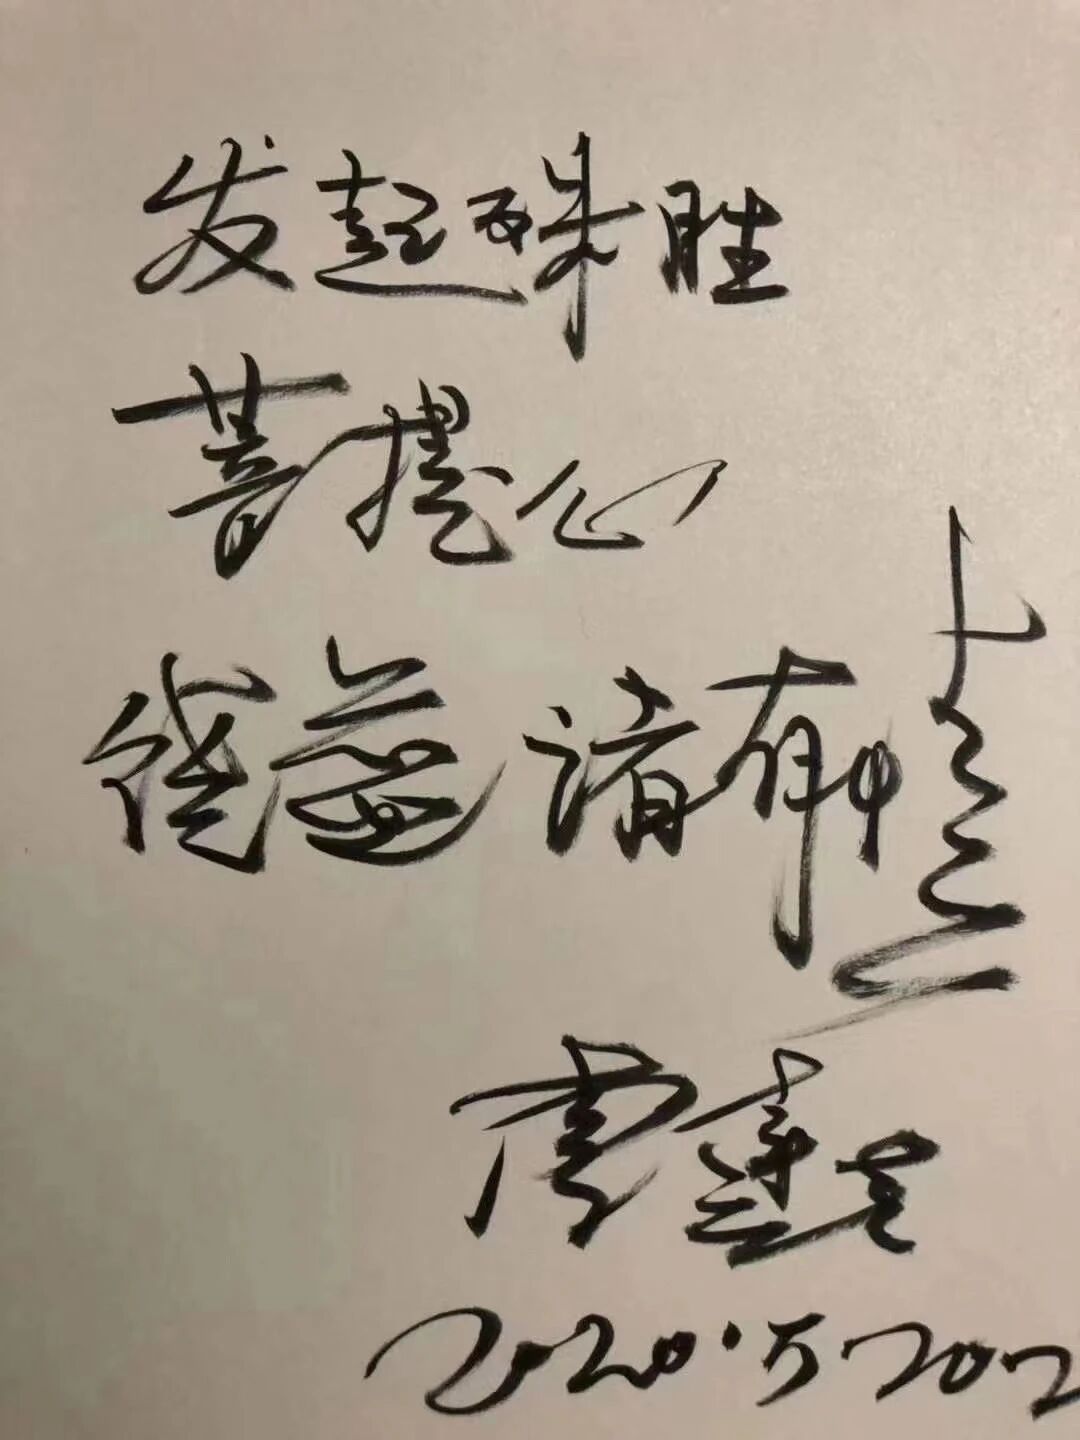 发起殊胜
菩提心
饶益诸有情
2020.5.20